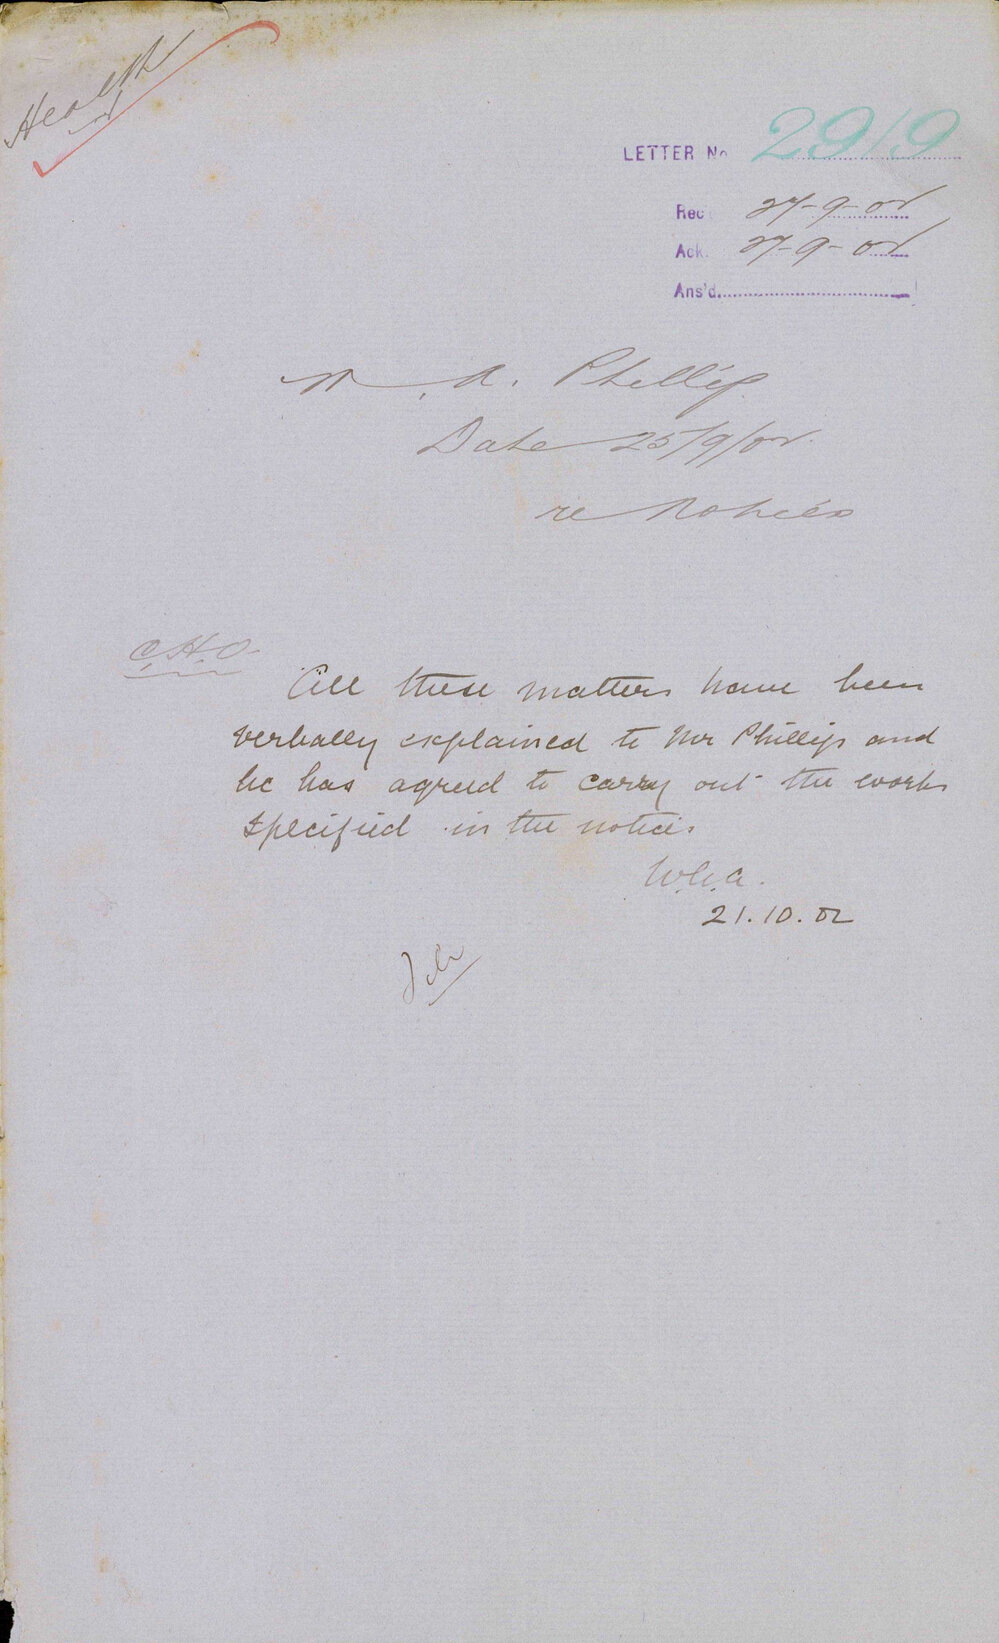 Health
LETTER No 2919
Rec 27-9-02
Ack. 27-9-02
Ans'd.
A. Phillip
Date 25/9/02
re Notices
C.H.O.
All these matters have been
verbally explained to Mr Phillip and
he has agreed to carry out the works
specified in the notices
21.10.02